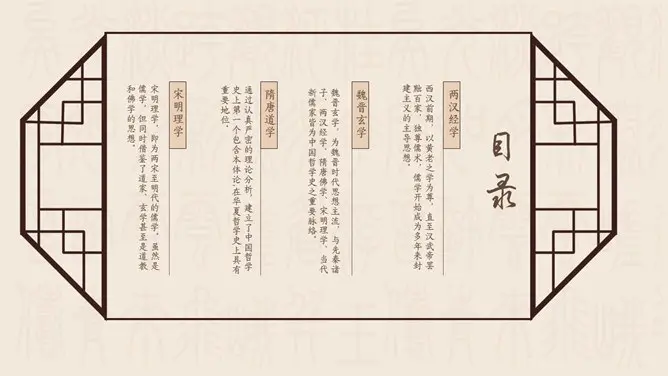 目录
两汉经学
西汉前期，以黄老之学为尊，直至汉武帝罢
黜百家，独尊儒术，儒学开始成为多年来封
建主义的主导思想。
魏晋玄学
魏晋玄学，为魏晋时代思想主流，与先秦诸
子、两汉经学、隋唐佛学、宋明理学、当代
新儒家皆为中国哲学史之重要脉络。
隋唐道学
通过认真严密的理论分析，建立了中国哲学
史上第一个包含本体论在华夏哲学史上具有
重要地位。
宋明理学
宋明理学，即为两宋至明代的儒学。虽然是
儒学，但同时借鉴了道家、玄学甚至是道教
和佛学的思想。